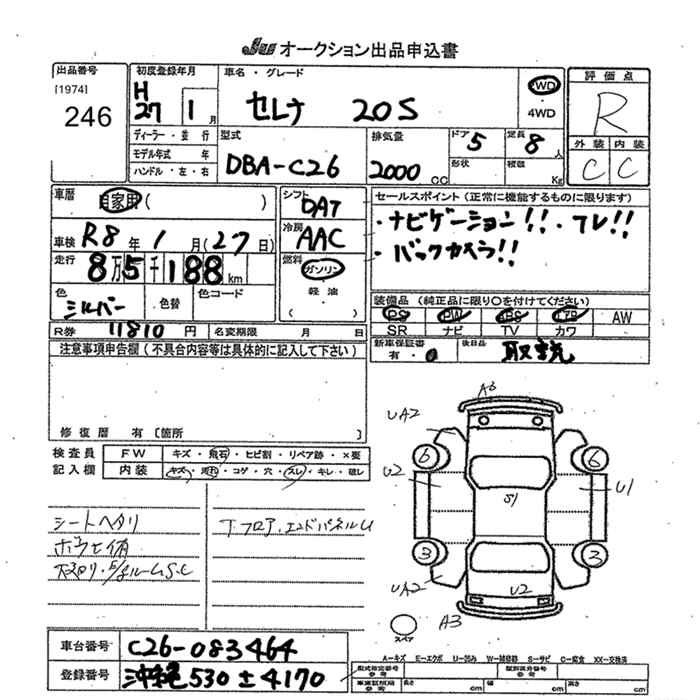 JU オークション出品申込書
出品番号
[1974]
246
初度登録年月
H
27 1 月
車名・グレード
セレナ 20S
2WD
4WD
評価点
R
外装 内装
C C
ディーラー・並行
モデル年式 年
ハンドル・左・右
型式
DBA-C26
排気量
2000 CC
ドア 5
形状
定員 8 人
積載 Kg
車歴
自家用 ( )
車検 R8 年 1 月 (27日)
走行 8万5千188 km
色
シルバー
色替
色コード
R券 11810 円
名変期限 月 日
シフト
DAT
冷房
AAC
燃料
ガソリン
軽油
( )
セールスポイント (正常に機能するものに限ります)
・ナビゲーション!!・フレ!!
・バックカメラ!!
装備品 (純正品に限り○を付けてください)
PS PW ABS エアB AW
SR ナビ TV カワ
新車保証書
有・
後日品
取説
注意事項申告欄 (不具合内容等は具体的に記入して下さい)
修復歴 有 〔箇所 〕
検査員
記入欄
FW キズ・飛石・ヒビ割・リペア跡・×要
内装 キズ・汚れ・コゲ・穴・スレ・キレ・破レ
シートヘタリ
T.フロア.エンドパネルU
A3
UA2
6 6
U2
S1
U1
3 3
UA2
U2
スペア
A3
A-キズ E-エクボ U-凹み W-補修跡 S-サビ C-腐食 XX-交換済
車台番号 C26-083464
登録番号 沖縄530 ± 4170
型式指定番号
参考
類別区分番号
参考
車庫証明用
参考
長さ cm
幅 cm
高さ cm